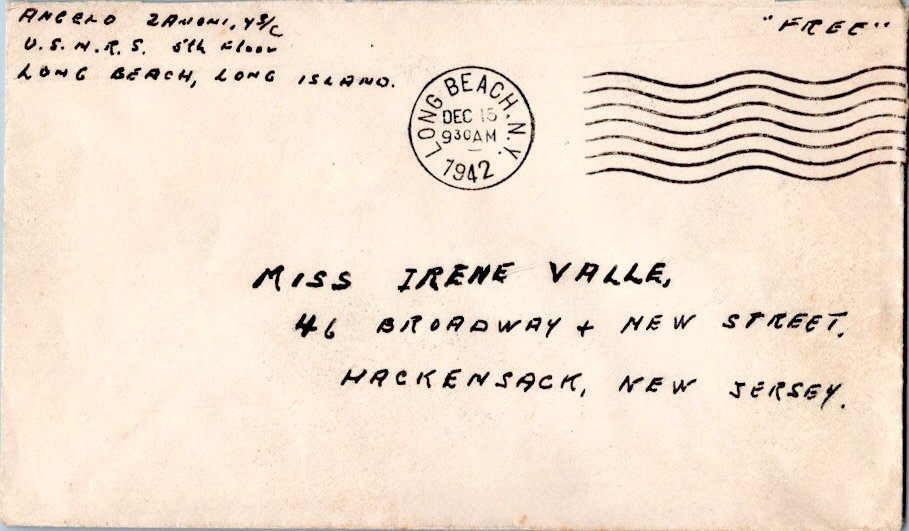 ANGELO ZANONI, Y3/C
U.S.N.R.S. 5th Floor
LONG BEACH, LONG ISLAND.
"FREE"
LONG BEACH, N.Y.
DEC 15
930AM
1942
MISS IRENE VALLE,
46 BROADWAY + NEW STREET.
HACKENSACK, NEW JERSEY.